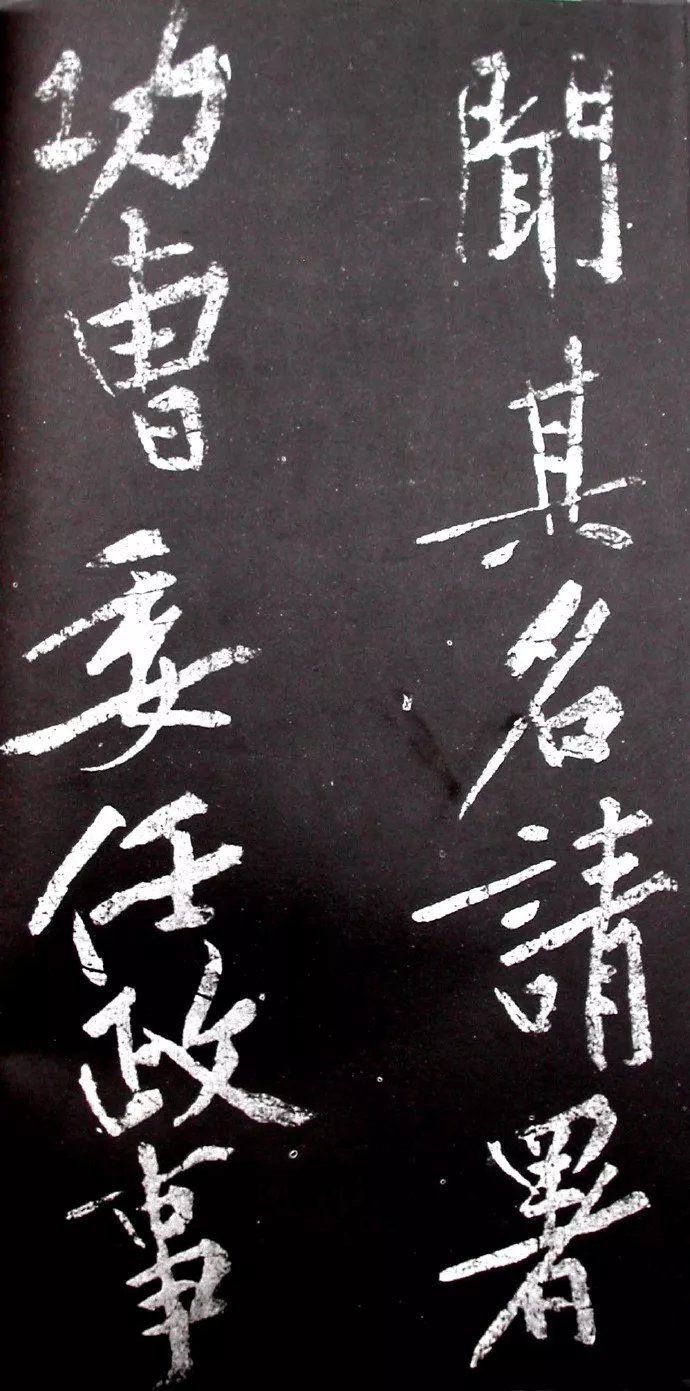 聞其名請署
功曹委任政事